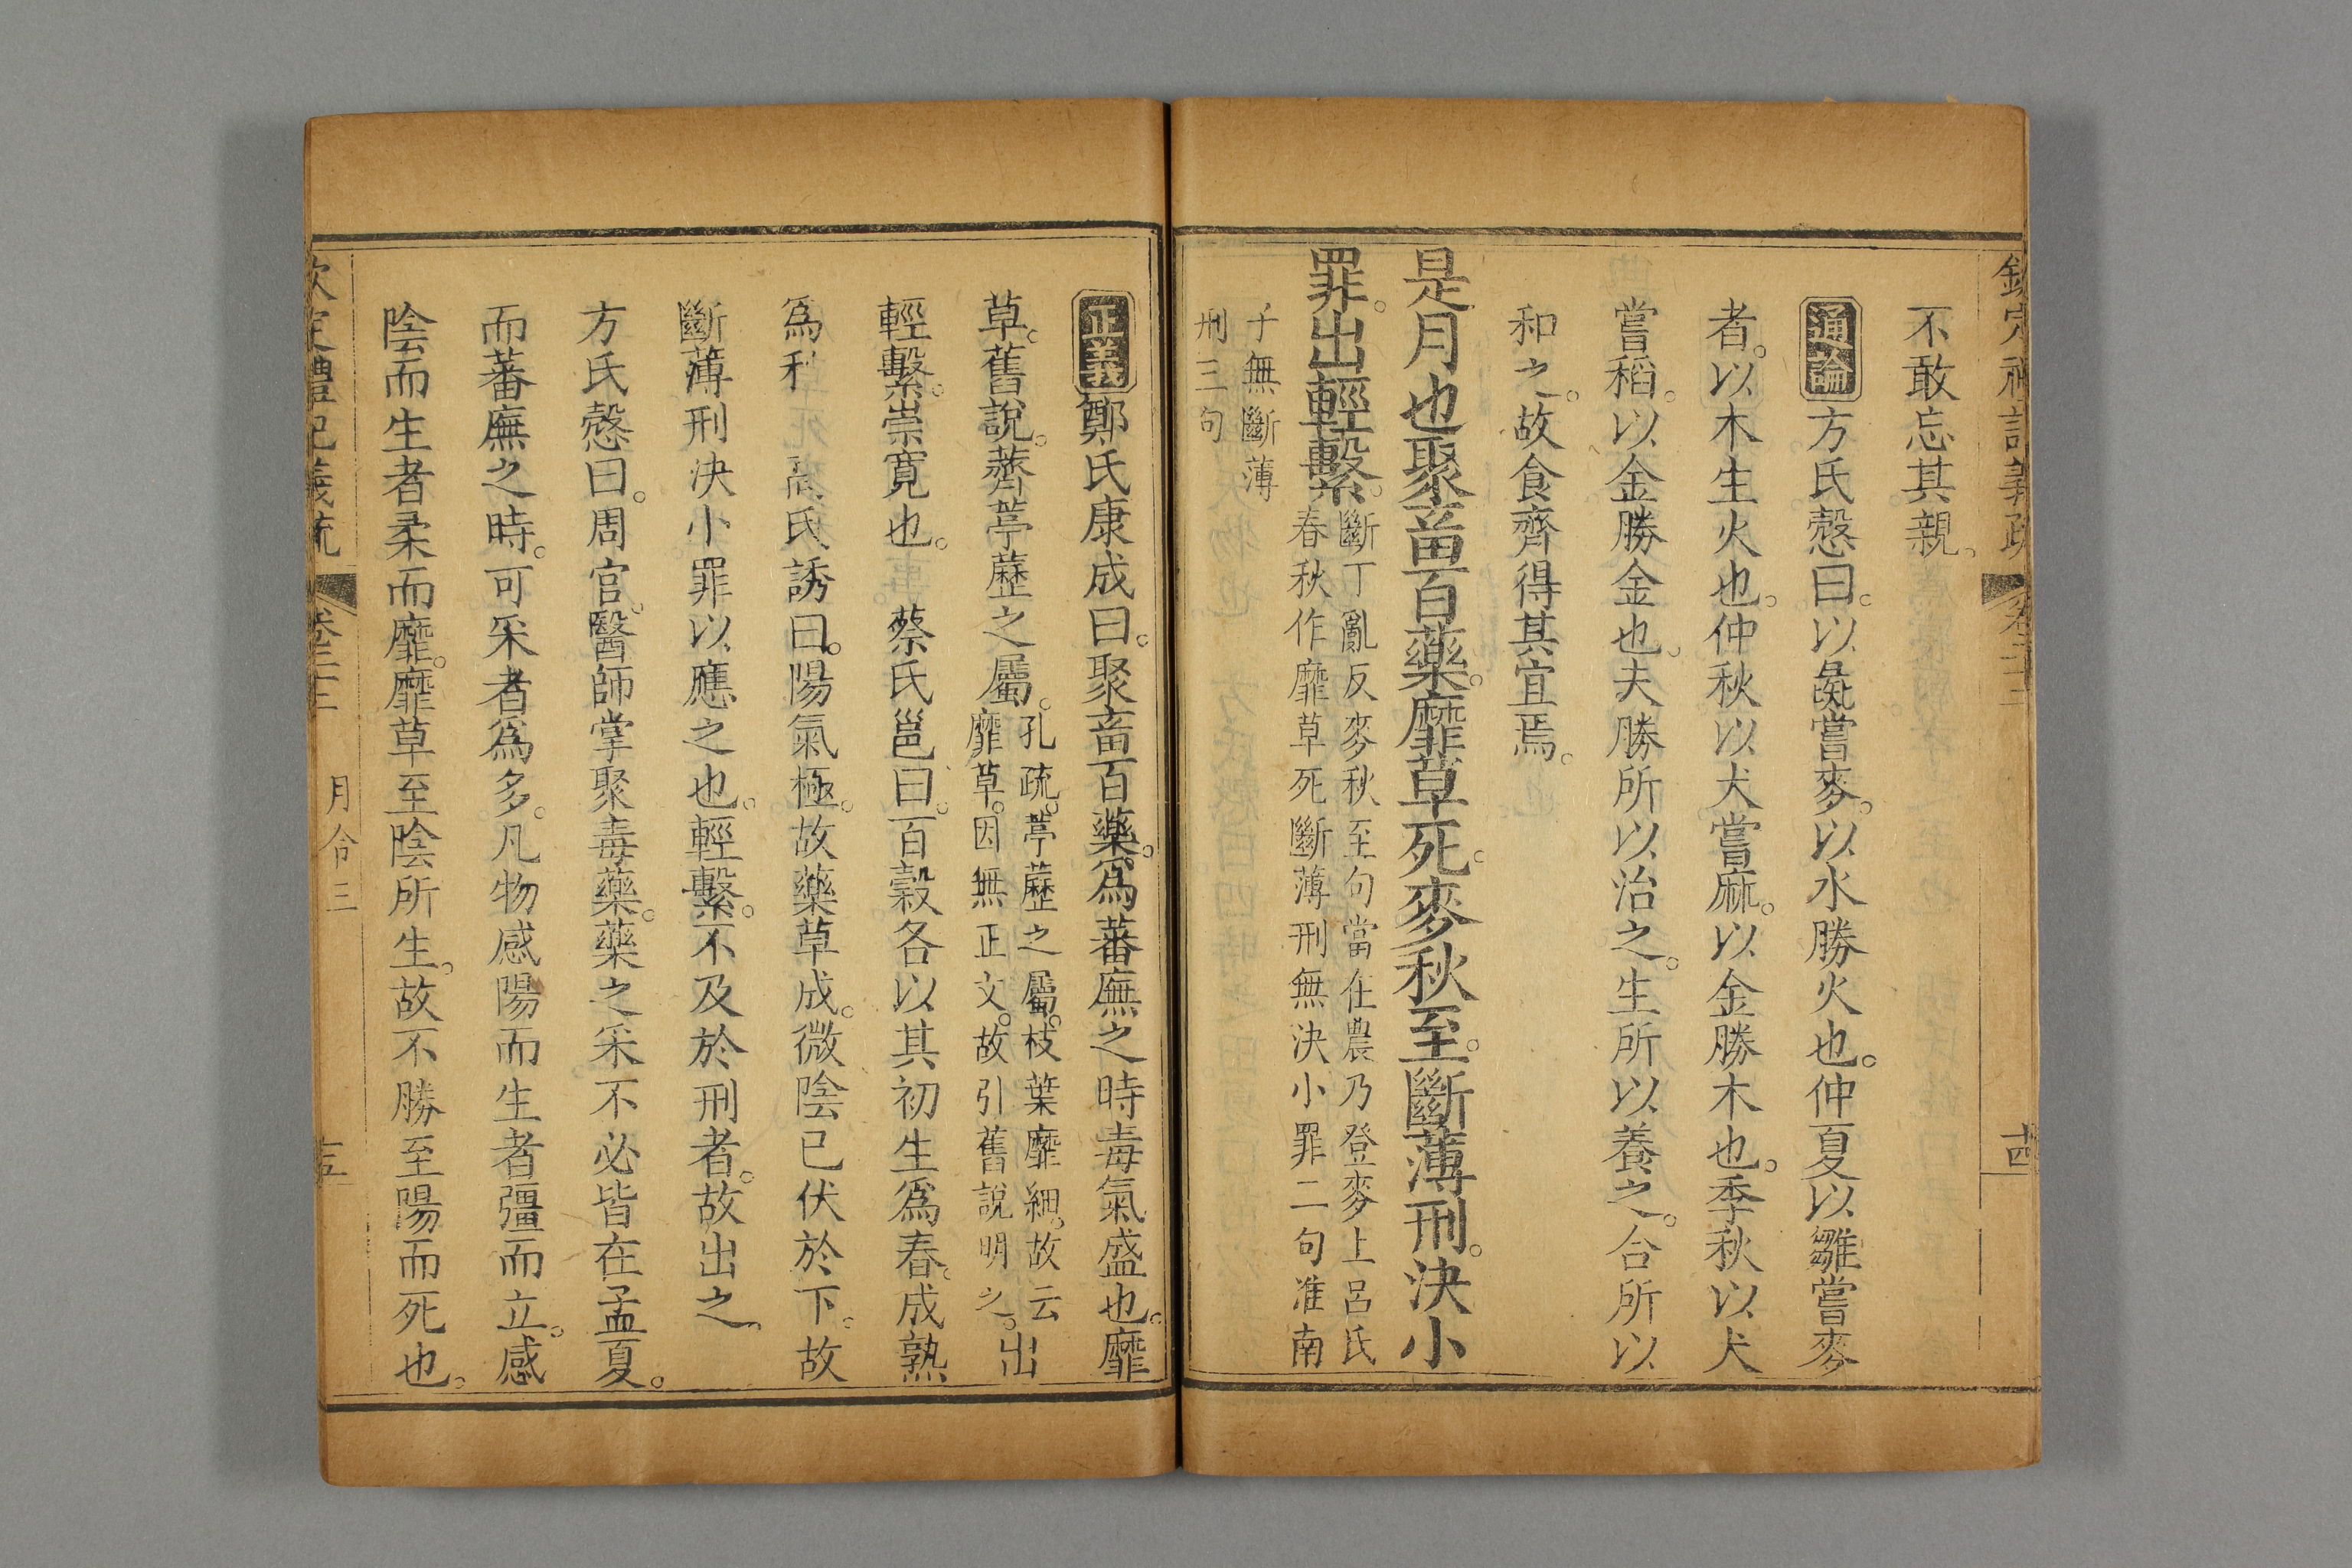 不敢忘其親。
通論 方氏慤曰。以彘嘗麥。以水勝火也。仲夏以雛嘗麥
者。以木生火也。仲秋以犬嘗麻。以金勝木也。季秋以犬
嘗稻。以金勝金也。夫勝所以治之。生所以養之。合所以
和之。故食齊得其宜焉。
是月也聚畜百藥。靡草死。麥秋至。斷薄刑。決小
罪。出輕繫。
斷丁亂反麥秋至句當在農乃登麥上呂氏
春秋作靡草死斷薄刑無決小罪二句准南
子無斷薄
刑三句
正義 鄭氏康成曰。聚畜百藥。爲蕃廡之時毒氣盛也。靡
草。舊說。薺葶藶之屬。
孔疏。葶藶之屬。枝葉靡細。故云
靡草。因無正文。故引舊說明之。
出
輕繫。崇寬也。 蔡氏邕曰。百穀各以其初生爲春。成熟
爲 高氏誘曰。陽氣極。故藥草成。微陰已伏於下。故
斷薄刑決小罪以應之也。輕繫。不及於刑者。故出之。
方氏慤曰。周官。醫師掌聚毒藥。藥之采不必皆在孟夏。
而蕃廡之時。可采者爲多。凡物感陽而生者彊而立。感
陰而生者柔而靡。靡草至陰所生。故不勝至陽而死也。
月令三